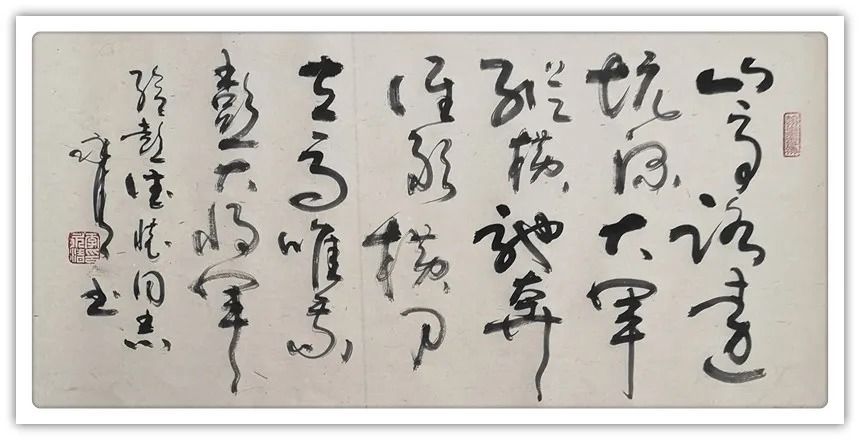 山高路遠
坑深大軍
縱橫馳奔
誰敢橫刀
立馬唯我
彭大將軍
給彭德懷同志
书